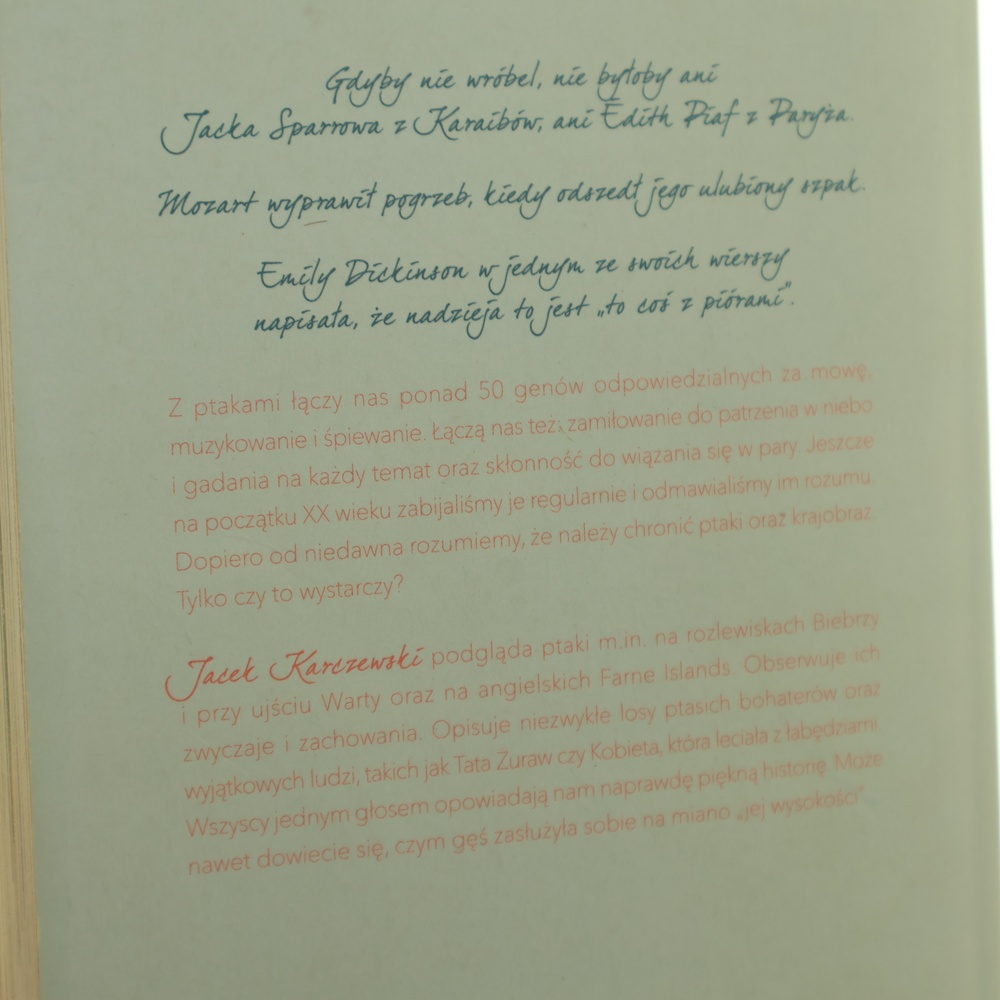 Gdyby nie wróbel, nie byłoby ani
Jacka Sparrowa z Karaibów, ani Edith Piaf z Paryża.
Mozart wyprawił pogrzeb, kiedy odszedł jego ulubiony szpak.
Emily Dickinson w jednym ze swoich wierszy
napisała, że nadzieja to jest „to coś z piórami”.
Z ptakami łączy nas ponad 50 genów odpowiedzialnych za mowę,
muzykowanie i śpiewanie. Łączą nas też: zamiłowanie do patrzenia w niebo
i gadania na każdy temat oraz skłonność do wiązania się w pary. Jeszcze
na początku XX wieku zabijaliśmy je regularnie i odmawialiśmy im rozumu.
Dopiero od niedawna rozumiemy, że należy chronić ptaki oraz krajobraz.
Tylko czy to wystarczy?
Jacek Karczewski podgląda ptaki m.in. na rozlewiskach Biebrzy
i przy ujściu Warty oraz na angielskich Farne Islands. Obserwuje ich
zwyczaje i zachowania. Opisuje niezwykłe losy ptasich bohaterów oraz
wyjątkowych ludzi, takich jak Tata Żuraw czy Kobieta, która leciała z łabędziami.
Wszyscy jednym głosem opowiadają nam naprawdę piękną historię. Może
nawet dowiecie się, czym gęś zasłużyła sobie na miano „jej wysokości”.